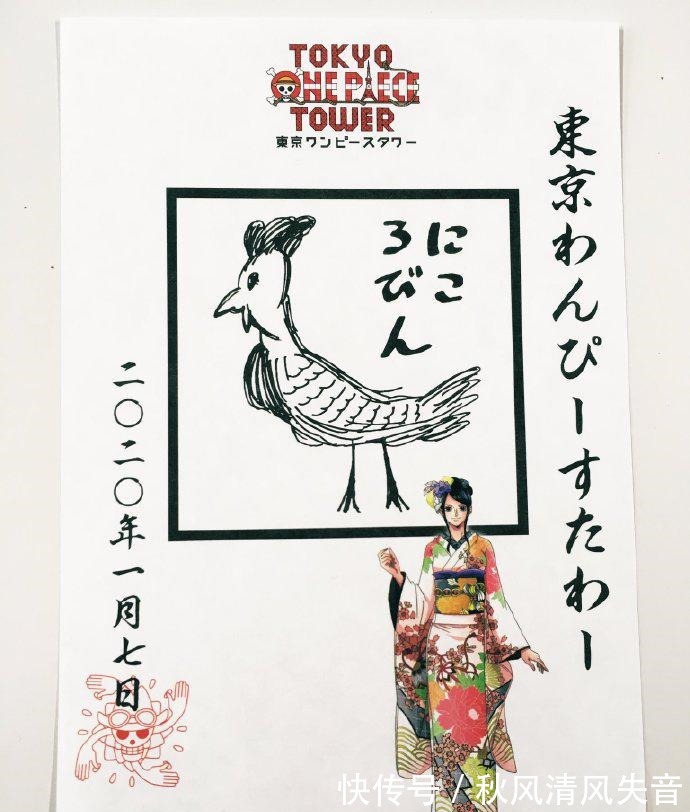 TOKYO
ONE PIECE
TOWER
東京ワンピースタワー
東京わんぴーすたわー
にこ
ろびん
二〇二〇年一月七日
快传号 / 秋风清风失音